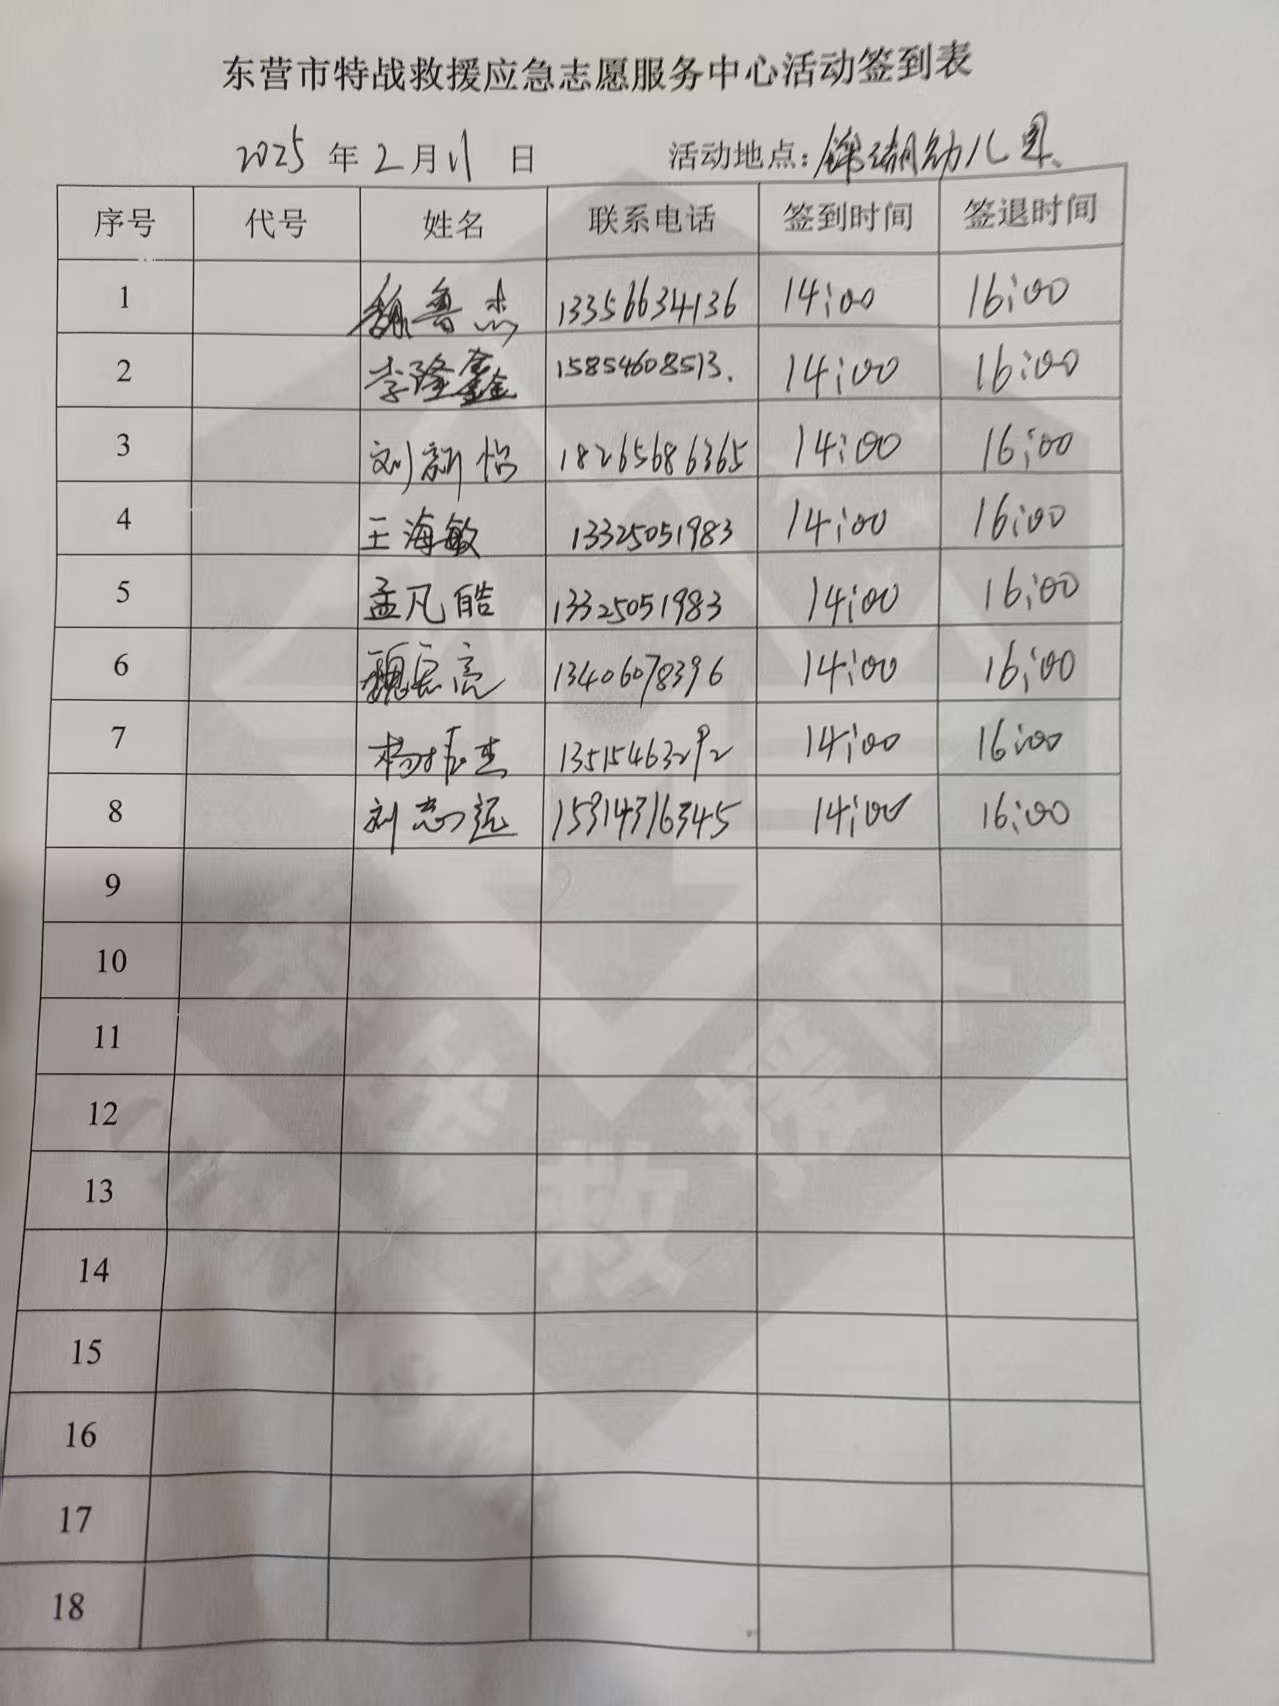 东营市特战救援应急志愿服务中心活动签到表
2025 年 2 月 11 日 活动地点：锦湖幼儿园、
序号 代号 姓名 联系电话 签到时间 签退时间
1 魏鲁杰 13356634136 14:00 16:00
2 李隆鑫 15854608513. 14:00 16:00
3 刘新怡 18265686365 14:00 16:00
4 王海敏 13325051983 14:00 16:00
5 孟凡皓 13325051983 14:00 16:00
6 魏亮 13406078396 14:00 16:00
7 杨杰 13515463292 14:00 16:00
8 刘志远 15314316345 14:00 16:00
9
10
11
12
13
14
15
16
17
18
救援队